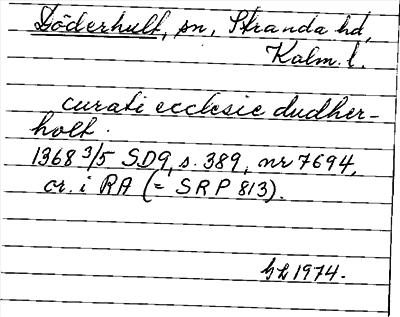 Döderhult, sn, Stranda hd,
Kalm. l.
curati ecclesie dudher-
holt.
1368 3/5 SD9, s. 389, nr 7694,
or. i RA (= SRP 813).
GL 1974.